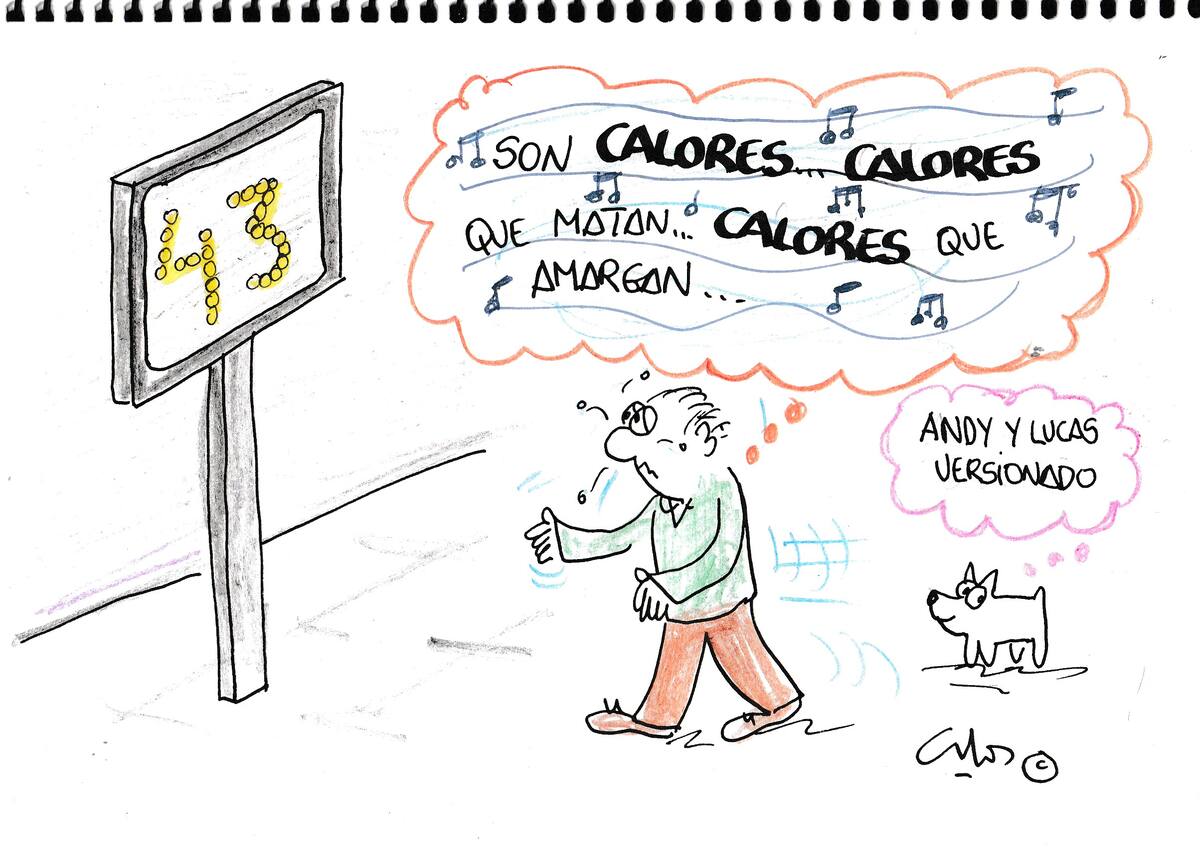 43
SON CALORES... CALORES
QUE MATAN... CALORES QUE
AMARGAN...
ANDY Y LUCAS
VERSIONADO
©